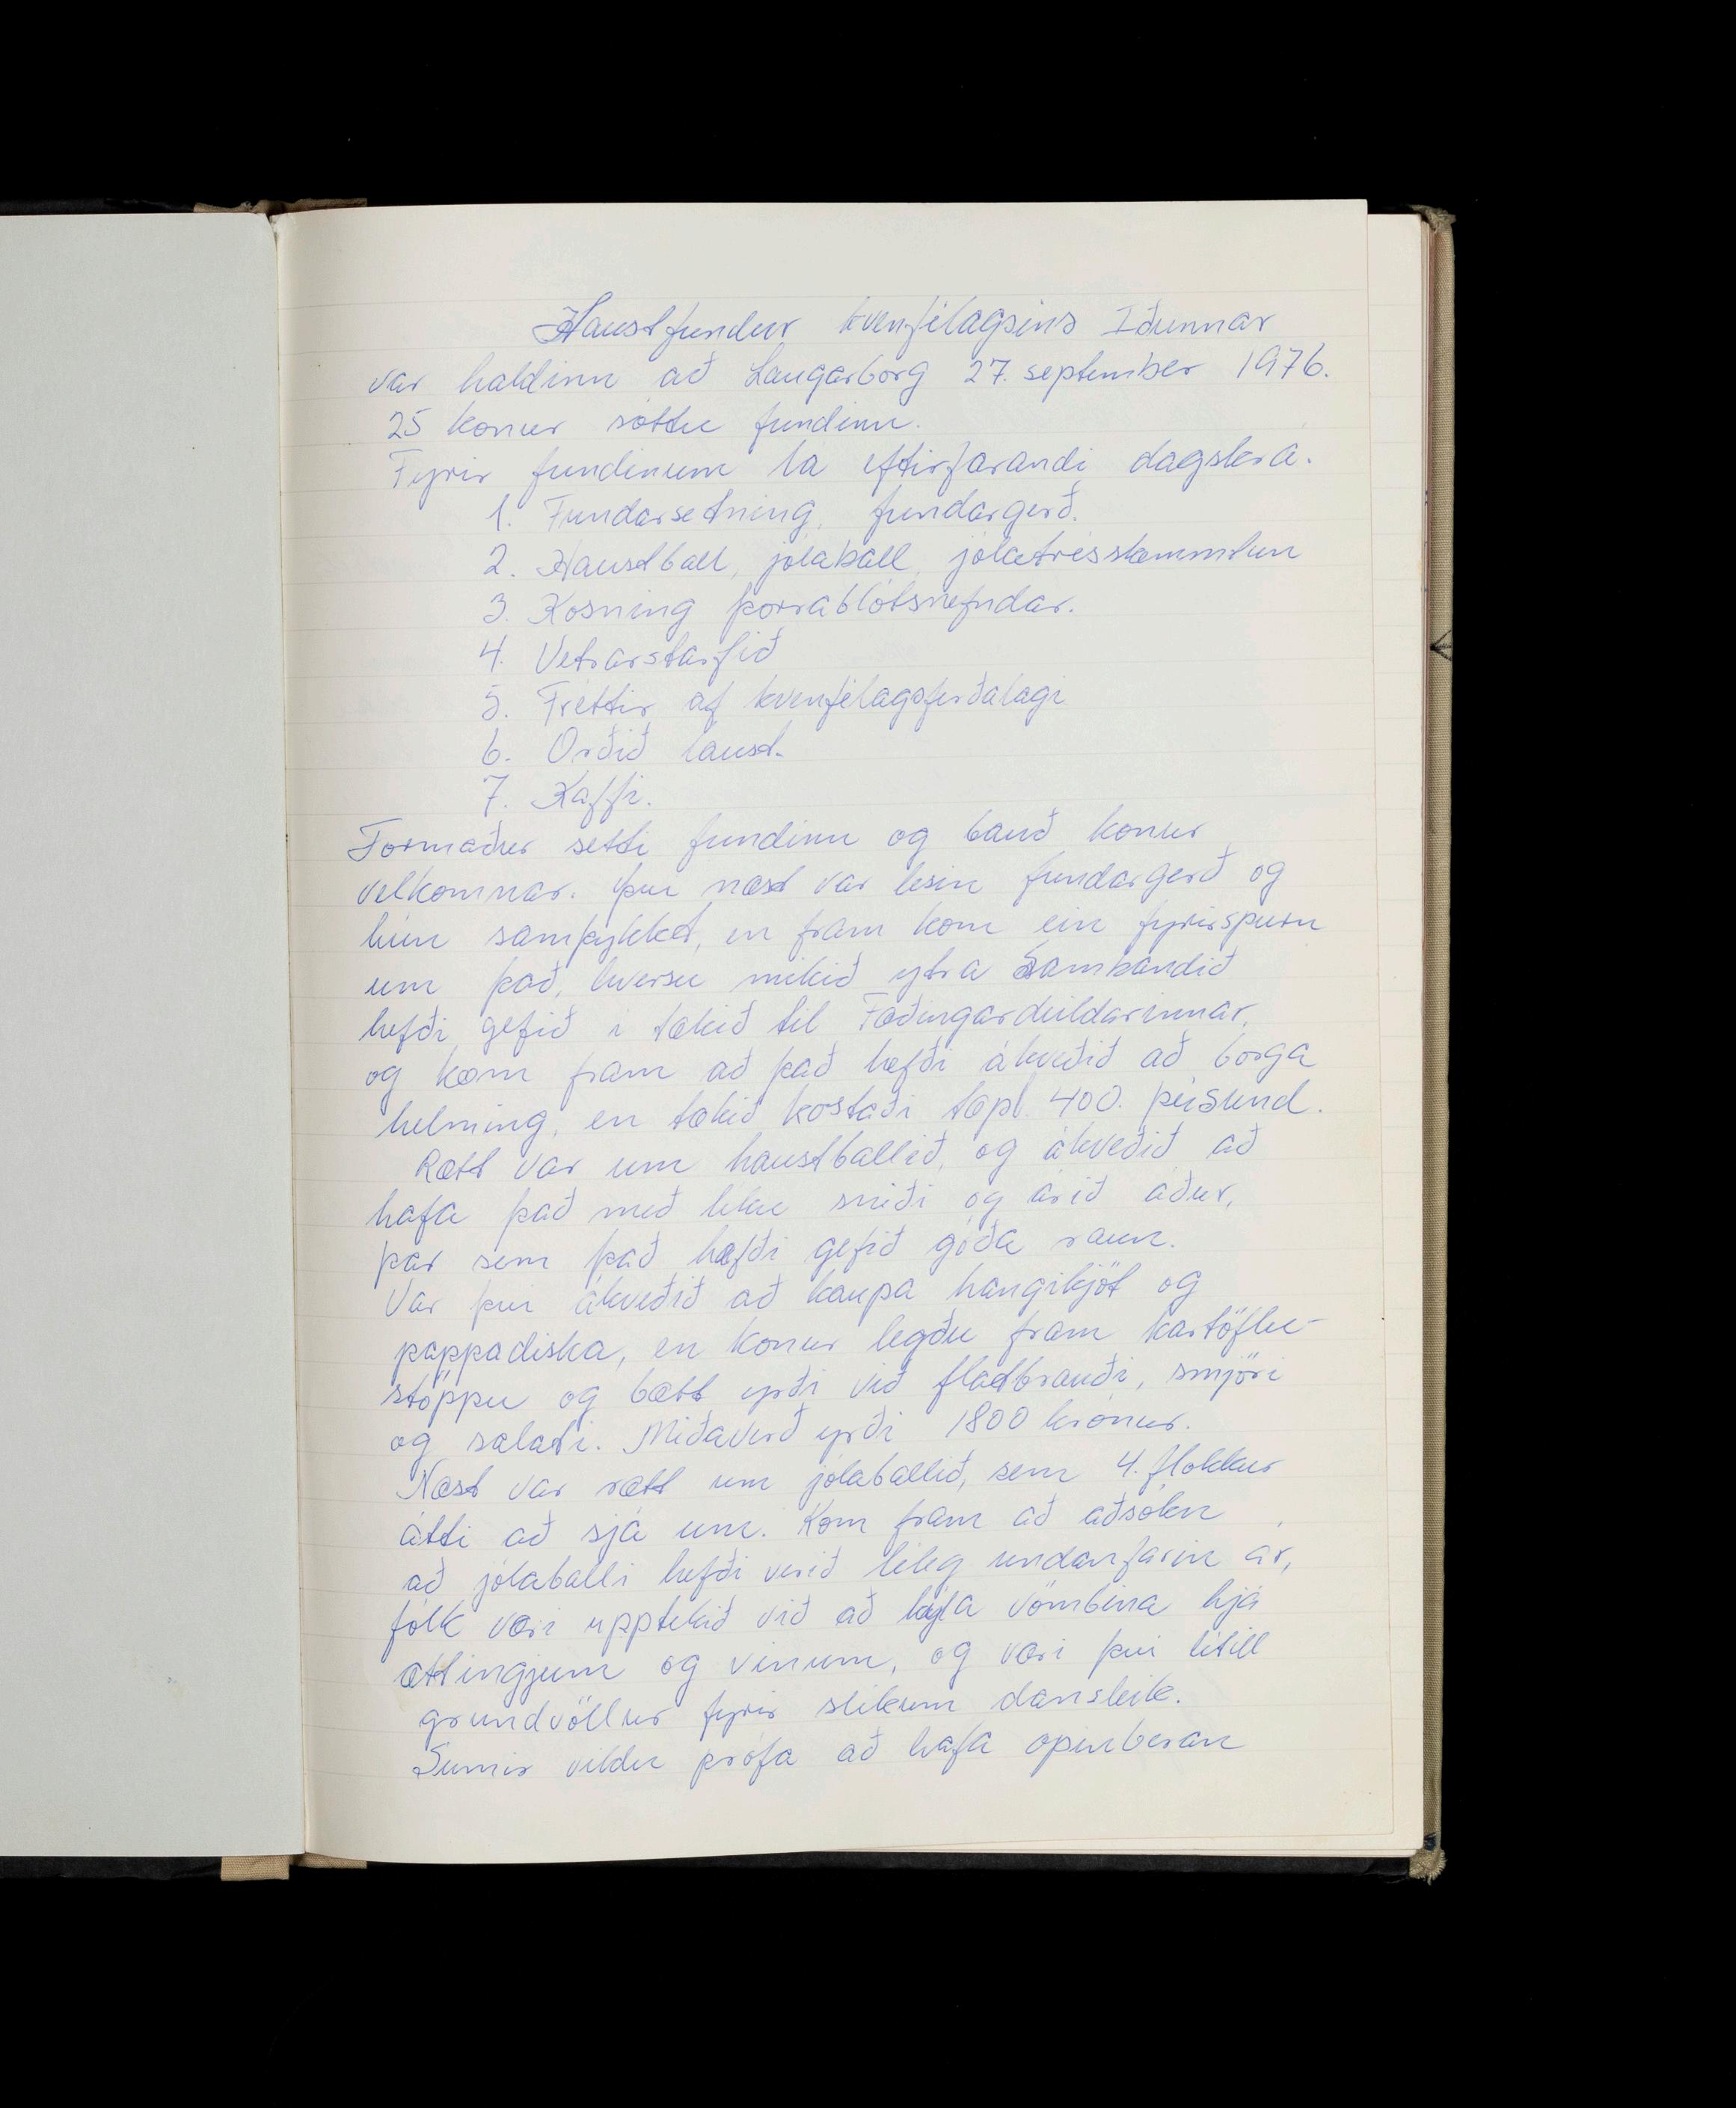 Haustfundur kvenfélagsins Iðunnar
var haldinn að Laugarborg 27. september 1976.
25 konur sóttu fundinn.
Fyrir fundinum lá eftirfarandi dagskrá.
1. Fundarsetning, fundargerð.
2. Haustball, jólaball, jólatrésskemmtun
3. Kosning þorrablótsnefndar.
4. Vetrarstarfið
5. Fréttir af kvenfélagsferðalagi
6. Orðið laust.
7. Kaffi.
Formaður setti fundinn og bauð konur
velkomnar. Þvi næst var lesin fundargerð og
hún samþykkt, en fram kom ein fyrirspurn
um það, hversu mikið ytra Sambandið
hefði gefið i tækið til Fæðingardeildarinnar,
og kom fram að það hefði ákveðið að borga
helming, en tækið kostaði tæpl. 400. þúsund.
Rætt var um haustballið, og ákveðið að
hafa það með líku sniði og árið áður,
þar sem það hefði gefið góða raun.
Var þvi ákveðið að kaupa hangikjöt og
pappadiska, en konur legðu fram kartöflu-
stöppu og bætt yrði við flatbrauði, smjöri
og salati. Miðaverð yrði 1800 krónur.
Næst var rætt um jólaballið, sem 4. flokkur
átti að sjá um. Kom fram að aðsókn
að jólaballi hefði verið léleg undanfarin ár,
fólk væri upptekið við að kýla vömbina hjá
ættingjum og vinum, og væri þvi lítill
grundvöllur fyrir slíkum dansleik.
Sumir vildu prófa að hafa opinberan